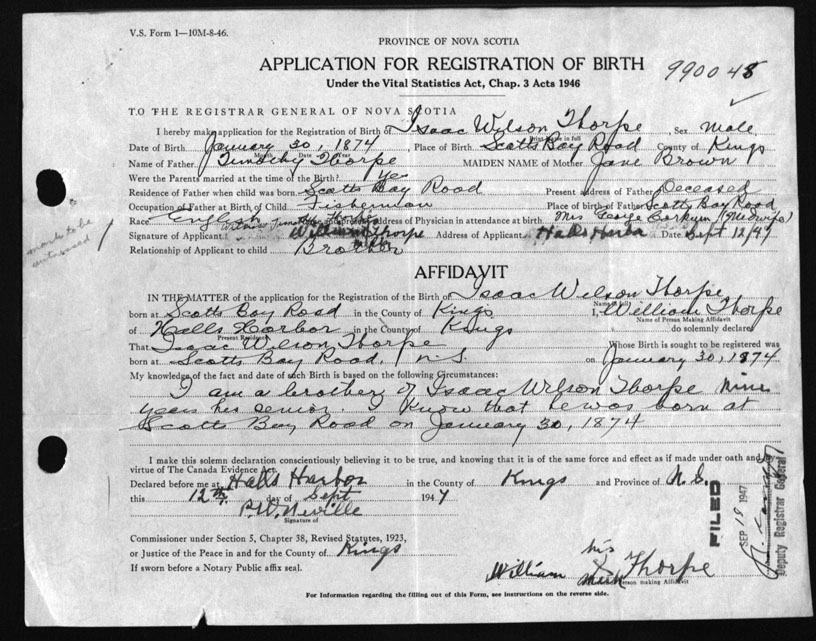 V.S. Form 1—10M-8-46.
PROVINCE OF NOVA SCOTIA
APPLICATION FOR REGISTRATION OF BIRTH
990048
Under the Vital Statistics Act, Chap. 3 Acts 1946
TO THE REGISTRAR GENERAL OF NOVA SCOTIA
I hereby make application for the Registration of Birth of Isaac Wilson Thorpe, Sex Male,
Print name in full
Date of Birth January 30, 1874, Place of Birth Scotts Bay Road County of Kings
Month Date Year
Name of Father Timothy Thorpe MAIDEN NAME of Mother Jane Brown
Were the Parents married at the time of the Birth? Yes
Residence of Father when child was born Scotts Bay Road Present address of Father Deceased
Occupation of Father at Birth of Child Fisherman Place of birth of Father Scotts Bay Road
Race English Name and present address of Physician in attendance at birth Mrs George Corkum (Midwife)
mark to be witnessed
Signature of Applicant William Thorpe Address of Applicant Halls Harbor Date Sept 12/47
Relationship of Applicant to child Brother
AFFIDAVIT
IN THE MATTER of the application for the Registration of the Birth of Isaac Wilson Thorpe
Name in full
born at Scotts Bay Road in the County of Kings I, William Thorpe
Name of Person Making Affidavit
of Halls Harbor in the County of Kings do solemnly declare
Present Residence
That Isaac Wilson Thorpe Whose Birth is sought to be registered was
born at Scotts Bay Road, N.S. on January 30, 1874
My knowledge of the fact and date of such Birth is based on the following Circumstances:
I am a brother of Isaac Wilson Thorpe nine
years his senior. I know that he was born at
Scotts Bay Road on January 30, 1874
I make this solemn declaration conscientiously believing it to be true, and knowing that it is of the same force and effect as if made under oath and by
virtue of The Canada Evidence Act.
Declared before me at Halls Harbor in the County of Kings and Province of N.S.
this 12th day of Sept 1947
P.W. Neville
Signature of
Commissioner under Section 5, Chapter 38, Revised Statutes, 1923,
or Justice of the Peace in and for the County of Kings
If sworn before a Notary Public affix seal.
William his x mark Thorpe
Person making Affidavit
FILED
SEP 18 1947
Deputy Registrar General
For Information regarding the filling out of this Form, see instructions on the reverse side.